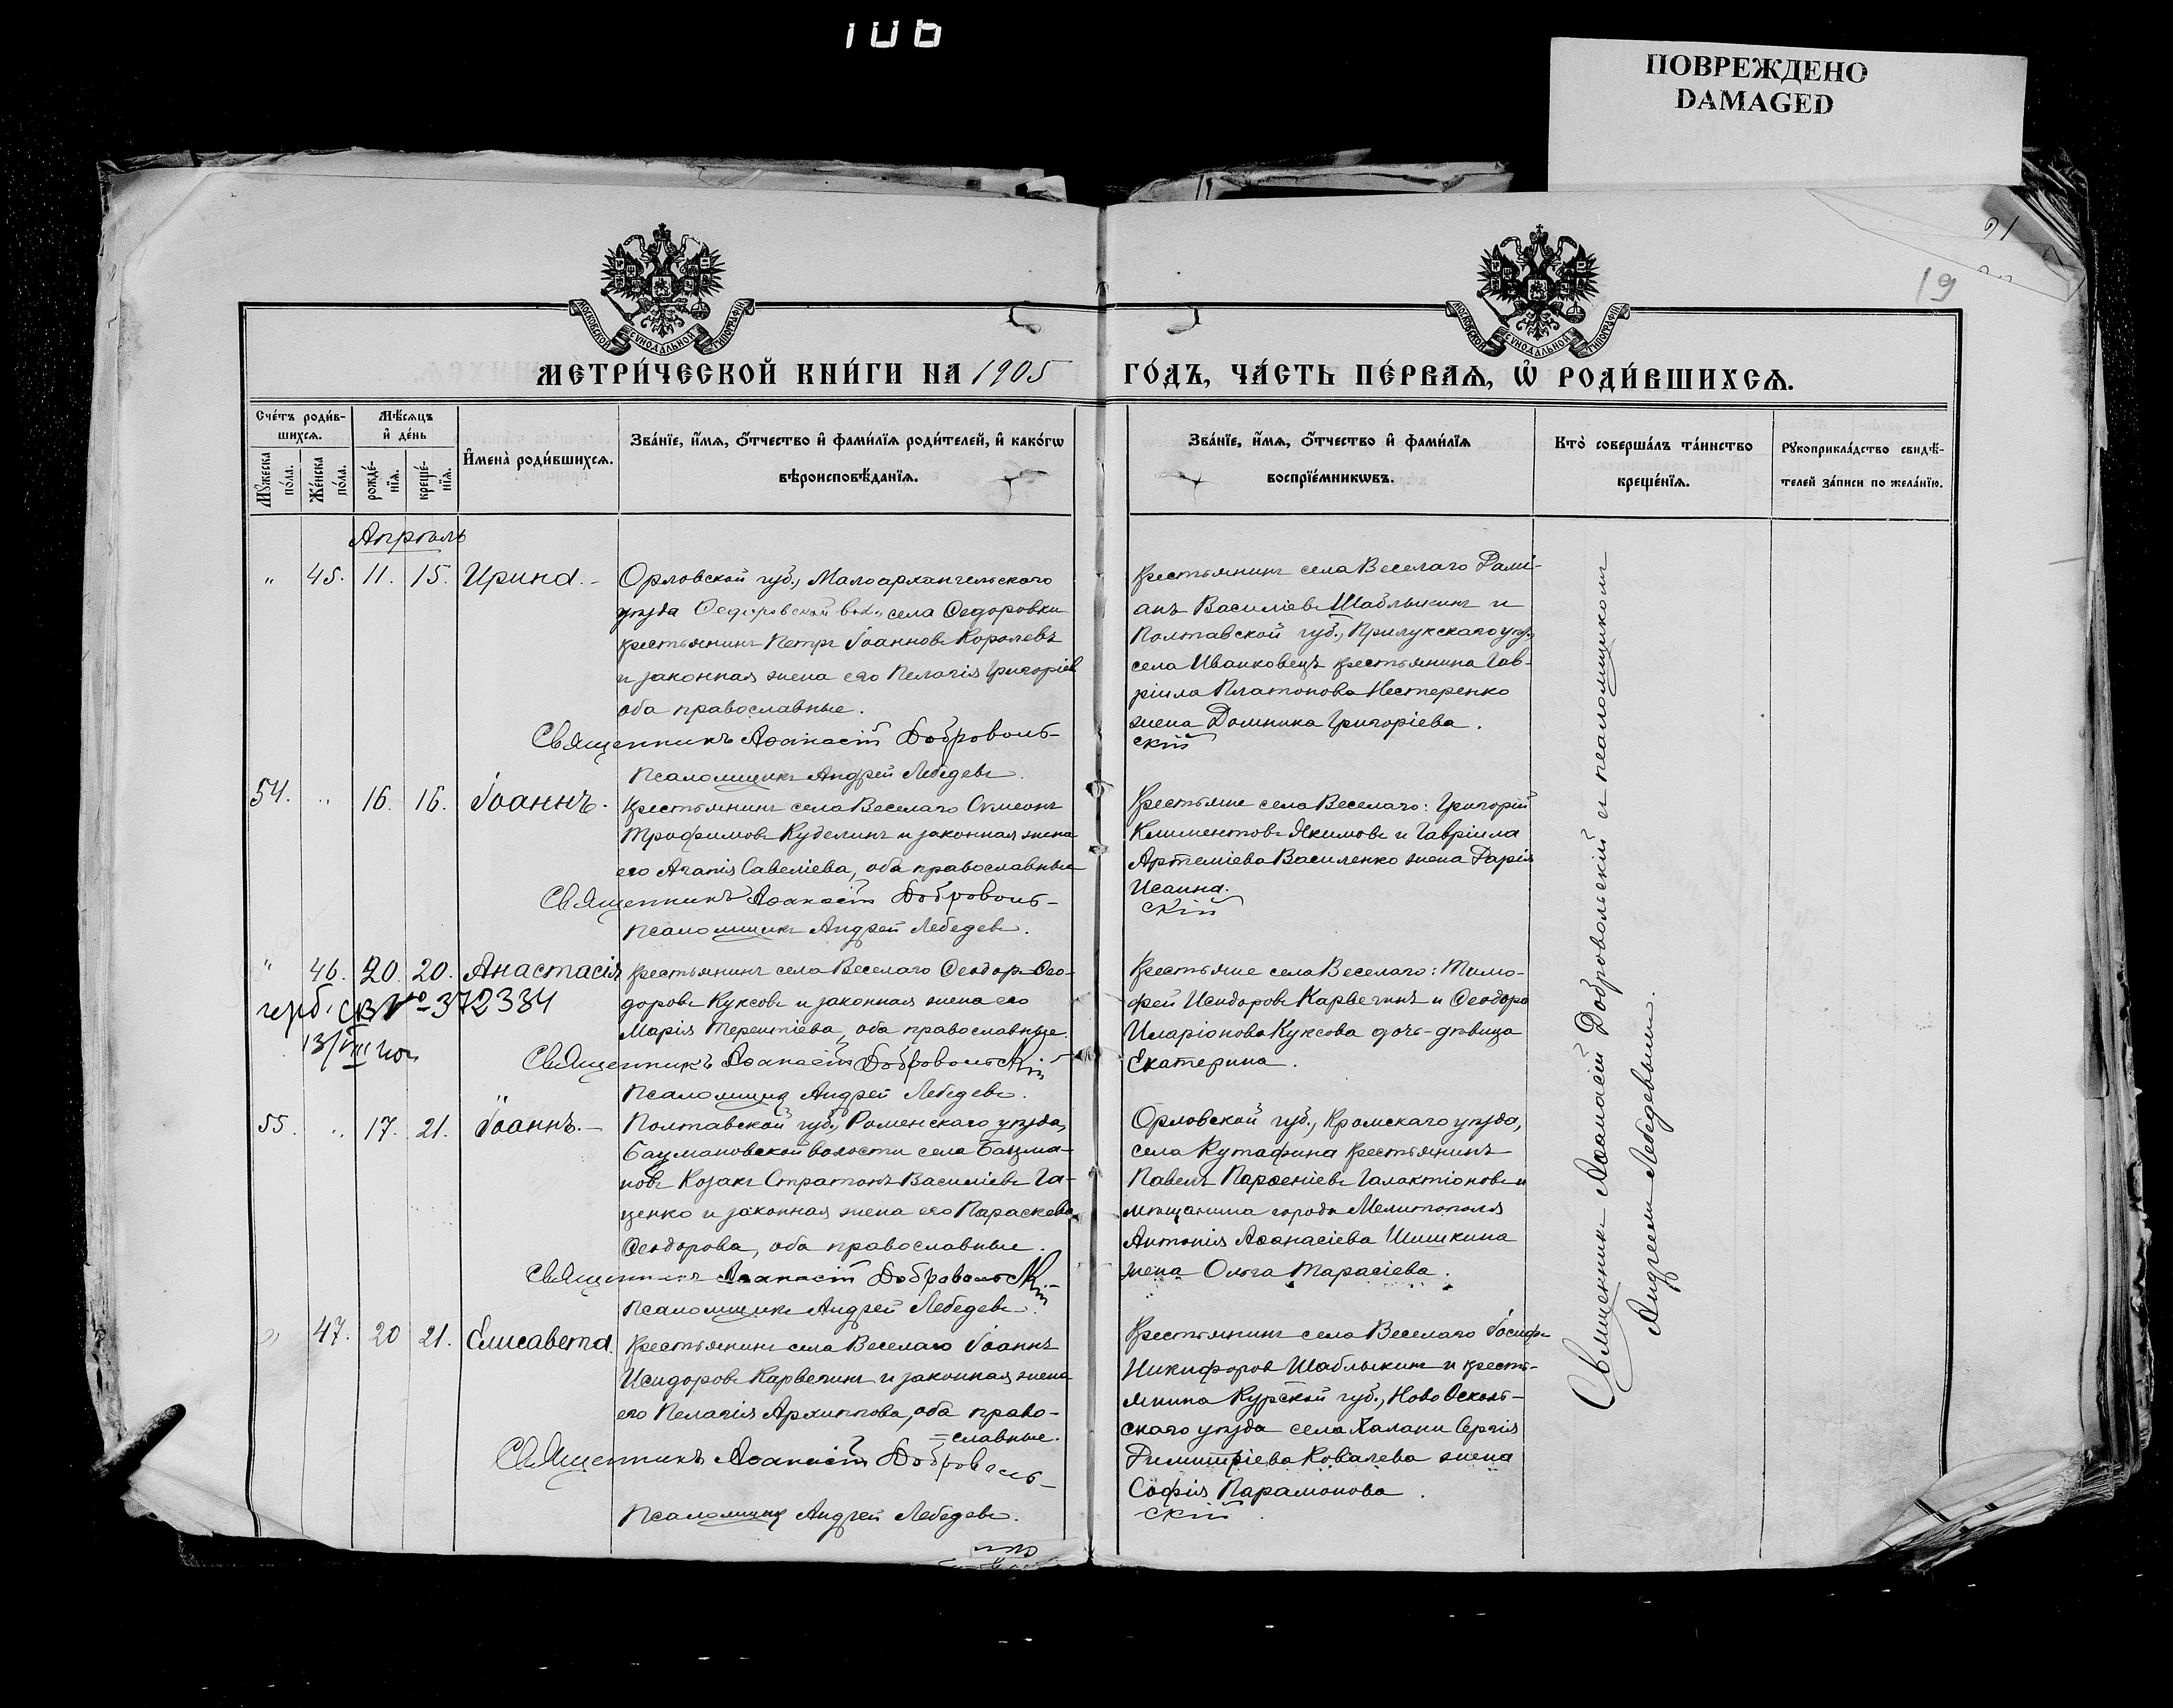 106
ПОВРЕЖДЕНО
DAMAGED
91
19
МОСКОВСКОЙ СѴНОДАЛЬНОЙ ТИПОГРАФІИ
МОСКОВСКОЙ СѴНОДАЛЬНОЙ ТИПОГРАФІИ
МЕТРИ́ЧЕСКОЙ КНИ́ГИ НА 1905 ГО́ДЪ, ЧА́СТЬ ПЕ́РВАѦ, Ѽ РОДИ́ВШИХСѦ.
Сче́тъ роди́в-
шихсѧ.
Мꙋ́жеска по́ла.
Же́нска по́ла.
Мѣ́сѧцъ
и҆ де́нь
рожде́-
нїѧ.
креще́-
нїѧ.
И҆мена̀ роди́вшихсѧ.
Зва́нїе, и҆́мѧ, ѻ҆́тчество и҆ фами́лїѧ роди́телей, и҆ како́гѡ
вѣроисповѣ́данїѧ.
Зва́нїе, и҆́мѧ, ѻ҆́тчество и҆ фами́лїѧ
воспрїе́мникѡвъ.
Кто̀ соверша́лъ та́инство
креще́нїѧ.
Рꙋкоприкла́дство свидѣ́-
телей за́писи по жела́нїю.
Апрѣль
" 45. 11. 15. Ирина. -
Орловской губ., Малоархангельскаго
уѣзда Ѳедоровской вол., села Ѳедоровки
крестьянинъ Петръ Іоанновъ Королевъ
и законная жена его Пелагія Григоріев
оба православные.
Священникъ Аѳанасій Доброволь-
Псаломщикъ Андрей Лебедевъ.
Крестьянинъ села Веселаго Дамі-
анъ Василіевъ Шаблыкинъ и
Полтавской губ., Прилукскаго уѣз.
села Иванковецъ крестьянина Гав-
ріила Платонова Нестеренко
жена Домника Григоріева.
скій
54. " 16. 16. Іоаннъ.
Крестьянинъ села Веселаго Симеонъ
Трофимовъ Куделинъ и законная жена
его Агапія Савеліева, оба православные
Священникъ Аѳанасій Доброволь-
Псаломщикъ Андрей Лебедевъ.
Крестьяне села Веселаго: Григорій
Климентовъ Якимовъ и Гавріила
Артеміева Василенко жена Дарія
Исаина.
скій
" 46. 20. 20. Анастасія
герб. СВ № 372334
Крестьянинъ села Веселаго Ѳеодоръ Ѳео-
доровъ Куксовъ и законная жена его
Марія Терентіева, оба православные.
Священникъ Аѳанасій Добровольскій
Псаломщикъ Андрей Лебедевъ.
Крестьяне села Веселаго: Тимо-
фей Исидоровъ Карвегинъ и Ѳеодора
Иларіонова Куксова дочь-дѣвица
Екатерина.
55. " 17. 21. Іоаннъ. -
Полтавской губ., Роменскаго уѣзда,
Бацмановской волости села Бацма-
новъ Козакъ Стратонъ Василіевъ Га-
ценко и законная жена его Параскева
Ѳеодорова, оба православные.
Священникъ Аѳанасій Добровольскій
Псаломщикъ Андрей Лебедевъ.
Орловской губ., Кромскаго уѣзда,
села Кутафина крестьянинъ
Павелъ Парѳеніевъ Галактіоновъ и
мѣщанина города Мелитополя
Антонія Аѳанасіева Шишкина
жена Ольга Тарасіева.
" 47. 20 21. Елисавета.
Крестьянинъ села Веселаго Іоаннъ
Исидоровъ Карвегинъ и законная жена
его Пелагія Архиппова, оба право-
=славные.
Священникъ Аѳанасій Доброволь-
Псаломщикъ Андрей Лебедевъ.
Крестьянинъ села Веселаго Іосифъ
Никифоровъ Шаблыкинъ и кресть-
янина Курской губ., Ново Осколь-
скаго уѣзда села Халани Сергія
Димитріева Ковалева жена
Софія Парамонова.
скій
Священникъ Аѳанасій Добровольскій и псаломщикомъ
Андреемъ Лебедевымъ.